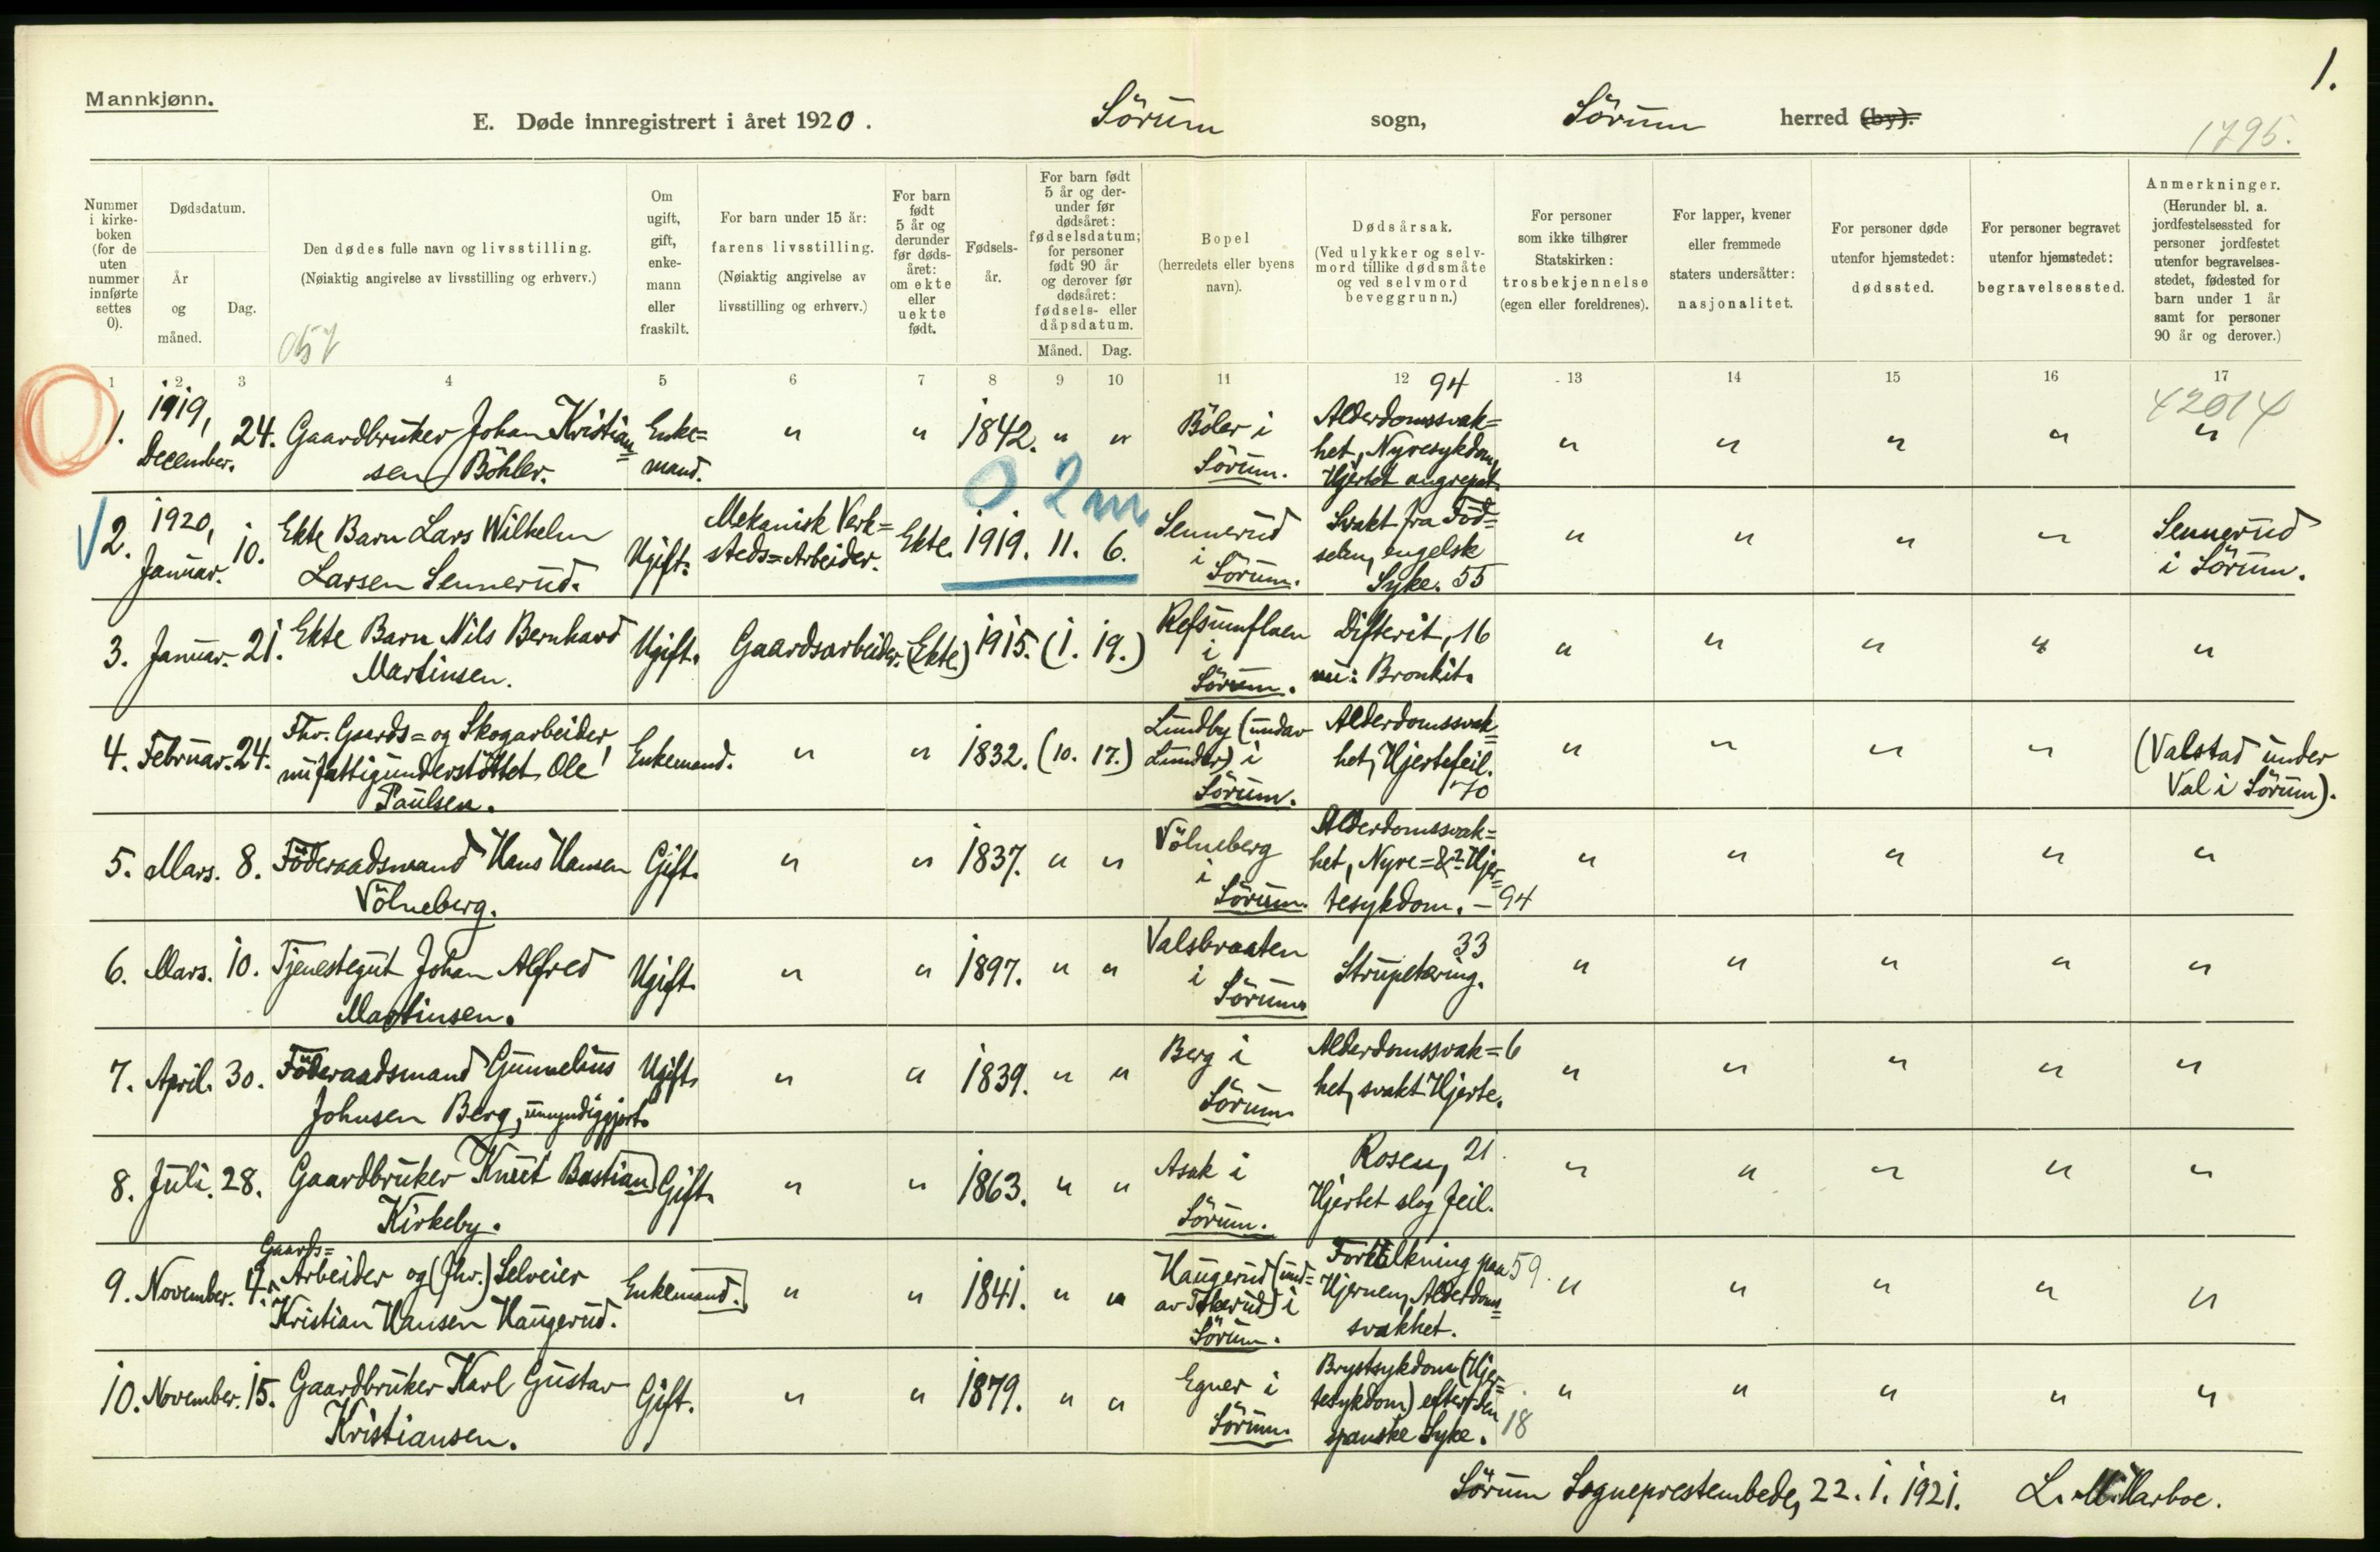 Mannkjønn.
1.
E. Døde innregistrert i året 1920. Sörum sogn, Sörum herred (by).
1795.
Nummer i kirkeboken (for de uten nummer innførte settes 0).
Dødsdatum.
År og måned.
Dag.
Den dødes fulle navn og livsstilling.
(Nøiaktig angivelse av livsstilling og erhverv.)
Om ugift, gift, enkemann eller fraskilt.
For barn under 15 år: farens livsstilling.
(Nøiaktig angivelse av livsstilling og erhverv.)
For barn født 5 år og derunder før dødsåret: om ekte eller uekte født.
Fødselsår.
For barn født 5 år og derunder før dødsåret: fødselsdatum; for personer født 90 år og derover før dødsåret: fødsels- eller dåpsdatum.
Måned. Dag.
Bopel (herredets eller byens navn).
Dødsårsak.
(Ved ulykker og selvmord tillike dødsmåte og ved selvmord beveggrunn.)
For personer som ikke tilhører Statskirken: trosbekjennelse (egen eller foreldrenes).
For lapper, kvener eller fremmede staters undersåtter: nasjonalitet.
For personer døde utenfor hjemstedet: dødssted.
For personer begravet utenfor hjemstedet: begravelsessted.
Anmerkninger.
(Herunder bl. a. jordfestelsessted for personer jordfestet utenfor begravelsesstedet, fødested for barn under 1 år samt for personer 90 år og derover.)
1 2 3 4 5 6 7 8 9 10 11 12 13 14 15 16 17
1. 1919, December. 24. Gaardbruker Johan Kristiansen Böhler. Enkemand. " " 1842. " " Böler i Sörum. Alderdomssvakhet, Nyresykdom, Hjertet angrepet. 94 " " " " "
42014
0 2m
2. 1920, Januar. 10. Ekte Barn Lars Wilhelm Larsen Sennerud. Ugift. Mekanisk Verksteds=Arbeider. Ekte. 1919. 11. 6. Sennerud i Sörum. Svakt fra Födselen, engelsk Syke. 55 " " " " Sennerud i Sörum.
3. Januar. 21. Ekte Barn Nils Bernhard Martinsen. Ugift. Gaardsarbeider. (Ekte) 1915. (1. 19.) Refsumfloen i Sörum. Difterit, 16 Bronkit. " " " " "
4. Februar. 24. Fhv. Gaards= og Skogarbeider, nu fattigunderstöttet Ole Paulsen. Enkemand. " " 1832. (10. 17.) Lundby (undav Lunder) i Sörum. Alderdomssvakhet, Hjertefeil. 70 " " " " (Valstad under Val i Sörum).
5. Mars. 8. Föderaadsmand Hans Hansen Völneberg. Gift. " " 1837. " " Völneberg i Sörum. Alderdomssvakhet, Nyre= & Hjertesykdom. - 94 " " " " "
6. Mars. 10. Tjenestegut Johan Alfred Martinsen. Ugift. " " 1897. " " Valsbraaten i Sörum. 33 Strupetæring. " " " " "
7. April. 30. Föderaadsmand Gunnelius Johnsen Berg, umyndiggjort. Ugift. " " 1839. " " Berg i Sörum. Alderdomssvakhet, svakt Hjerte. 6 " " " " "
8. Juli. 28. Gaardbruker Knut Bastian Kirkeby. Gift. " " 1863. " " Asak i Sörum. Rosen, 21 Hjertet slog feil. " " " " "
9. November. 4. Gaards=Arbeider og (fhv.) Selveier Kristian Hansen Haugerud. Enkemand. " " 1841. " " Haugerud (und av) i Sörum. Forkalkning paa Hjernen, Alderdomssvakhet. 59. " " " " "
10. November. 15. Gaardbruker Karl Gustav Kristiansen. Gift. " " 1879. " " Egner i Sörum. Brystsykdom (Hjertesykdom) efter den spanske Syke. 18 " " " " "
Sörum Sogneprestembede, 22. 1. 1921. L. M. Harboe.